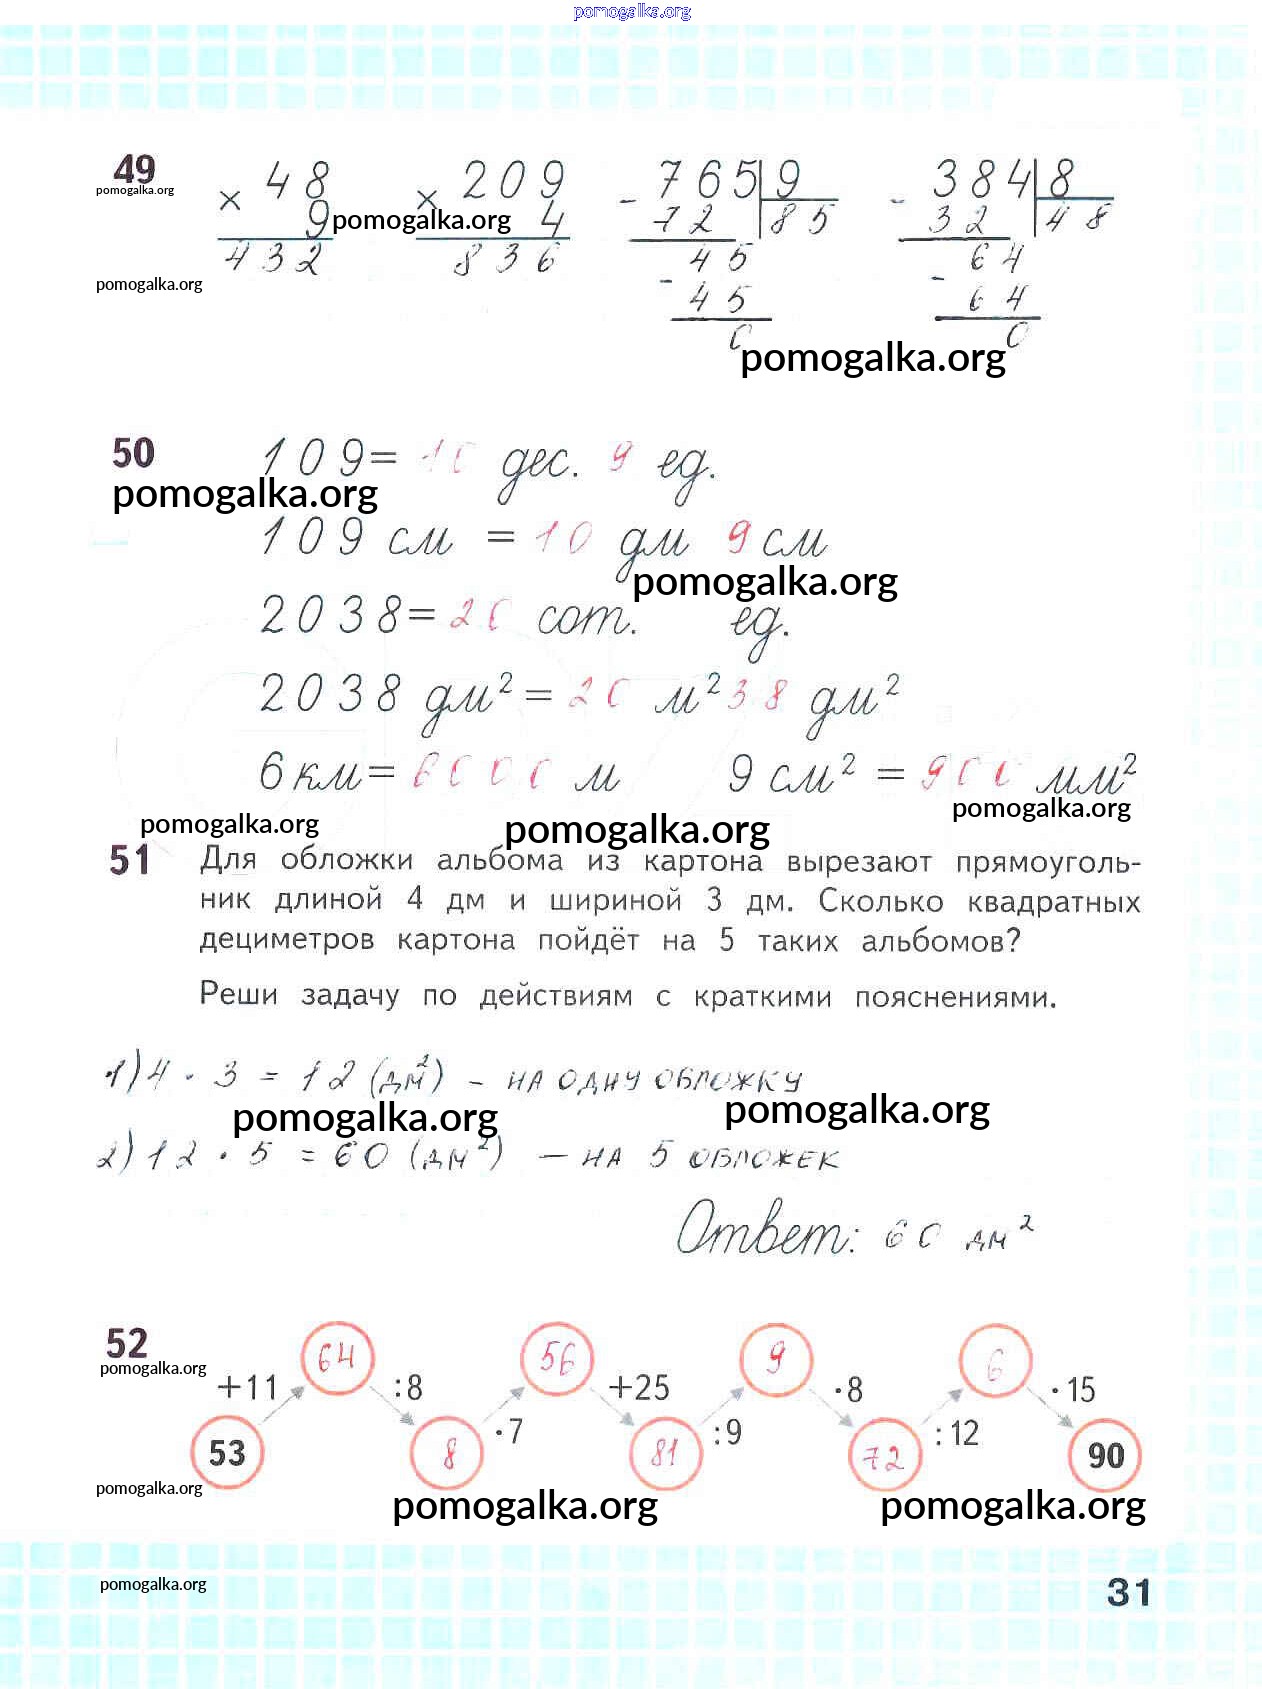 pomogalka.org
49
pomogalka.org
× 48 × 209 - 765 9 - 384 8
9 pomogalka.org 4 72 85 32 48
432 836 45 64
pomogalka.org - 45 - 64
0 0
pomogalka.org
50 109= 10 дес. 9 ед.
pomogalka.org
109 см = 10 дм 9 см
pomogalka.org
2038= 20 сот. ед.
2038 дм² = 20 м² 38 дм²
6 км= 6000 м 9 см² = 900 мм²
pomogalka.org pomogalka.org pomogalka.org
51 Для обложки альбома из картона вырезают прямоуголь-
ник длиной 4 дм и шириной 3 дм. Сколько квадратных
дециметров картона пойдёт на 5 таких альбомов?
Реши задачу по действиям с краткими пояснениями.
1) 4 · 3 = 12 (дм²) – на одну обложку
pomogalka.org pomogalka.org
2) 12 · 5 = 60 (дм²) – на 5 обложек
Ответ: 60 дм²
52 64 56 9 6
pomogalka.org
+11 :8 +25 ·8 ·15
·7 :9 :12
53 8 81 72 90
pomogalka.org pomogalka.org pomogalka.org
pomogalka.org
31